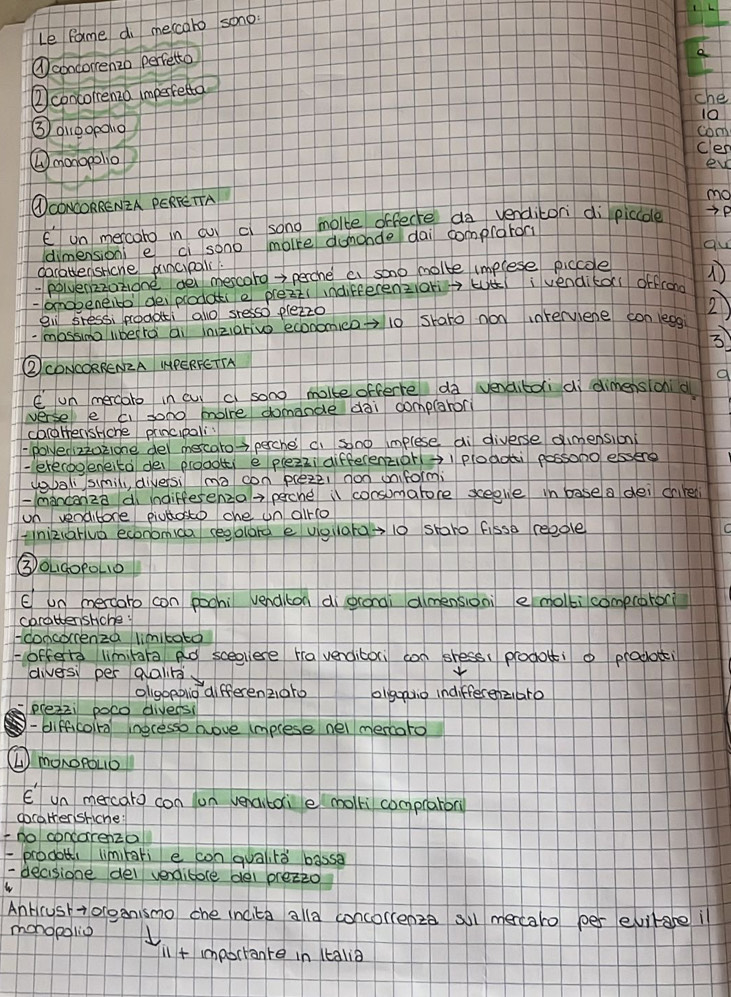 Le forme di mercato sono:
① concorrenza perfetta
② concorrenza imperfetta
③ oligopolio
④ monopolio
① CONCORRENZA PERFETTA
E' un mercato in cui ci sono molte offerte da venditori di piccole
dimensioni e ci sono molte domande dai compratori
caratteristiche principali:
- polverizzazione del mercato → perché ci sono molte imprese piccole
- omogeneità dei prodotti e prezzi indifferenziati → tutti i venditori offrono
gli stessi prodotti allo stesso prezzo
- massima libertà di iniziativa economica → lo stato non interviene con leggi
② CONCORRENZA IMPERFETTA
E' un mercato in cui ci sono molte offerte da venditori di dimensioni di
verse e ci sono molte domande dai compratori
caratteristiche principali:
- polverizzazione del mercato → perché ci sono imprese di diverse dimensioni
- eterogeneità dei prodotti e prezzi differenziati → i prodotti possono essere
uguali, simili, diversi ma con prezzi non uniformi
- mancanza di indifferenza → perché il consumatore sceglie in base a dei criteri
un venditore piuttosto che un altro
- iniziativa economica regolata e vigilata → lo stato fissa regole
③ OLIGOPOLIO
E' un mercato con pochi venditori di grandi dimensioni e molti compratori
caratteristiche:
- concorrenza limitata
- offerta limitata può scegliere tra venditori con stessi prodotti o prodotti
diversi per qualità ↓
oligopolio differenziato oligopolio indifferenziato
- prezzi poco diversi
- difficoltà ingresso nuove imprese nel mercato
④ MONOPOLIO
E' un mercato con un venditore e molti compratori
caratteristiche:
- no concorrenza
- prodotti limitati e con qualità bassa
- decisione del venditore del prezzo
Antitrust → organismo che incita alla concorrenza sul mercato per evitare il
monopolio ↓
il + importante in Italia
che
lo
com
mo
→ P
qu
1)
2)
3)